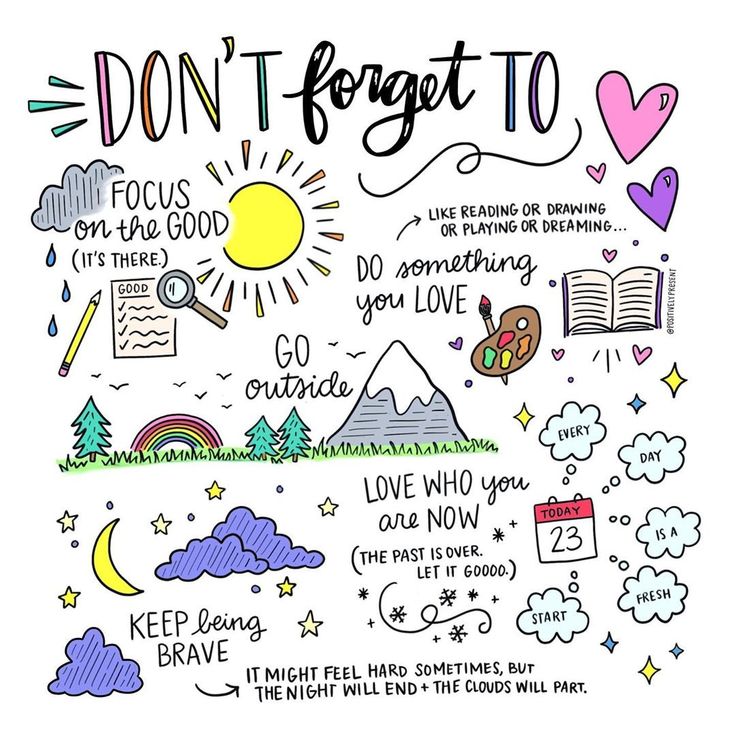 DON'T forget TO
FOCUS
on the GOOD
(IT'S THERE.)
GOOD
LIKE READING OR DRAWING
OR PLAYING OR DREAMING...
DO something
you LOVE
@POSITIVELYPRESENT
GO
outside
LOVE WHO you
are NOW
(THE PAST IS OVER.
LET IT GOOOO.)
EVERY
DAY
IS A
FRESH
START
TODAY
23
KEEP being
BRAVE
IT MIGHT FEEL HARD SOMETIMES, BUT
THE NIGHT WILL END + THE CLOUDS WILL PART.